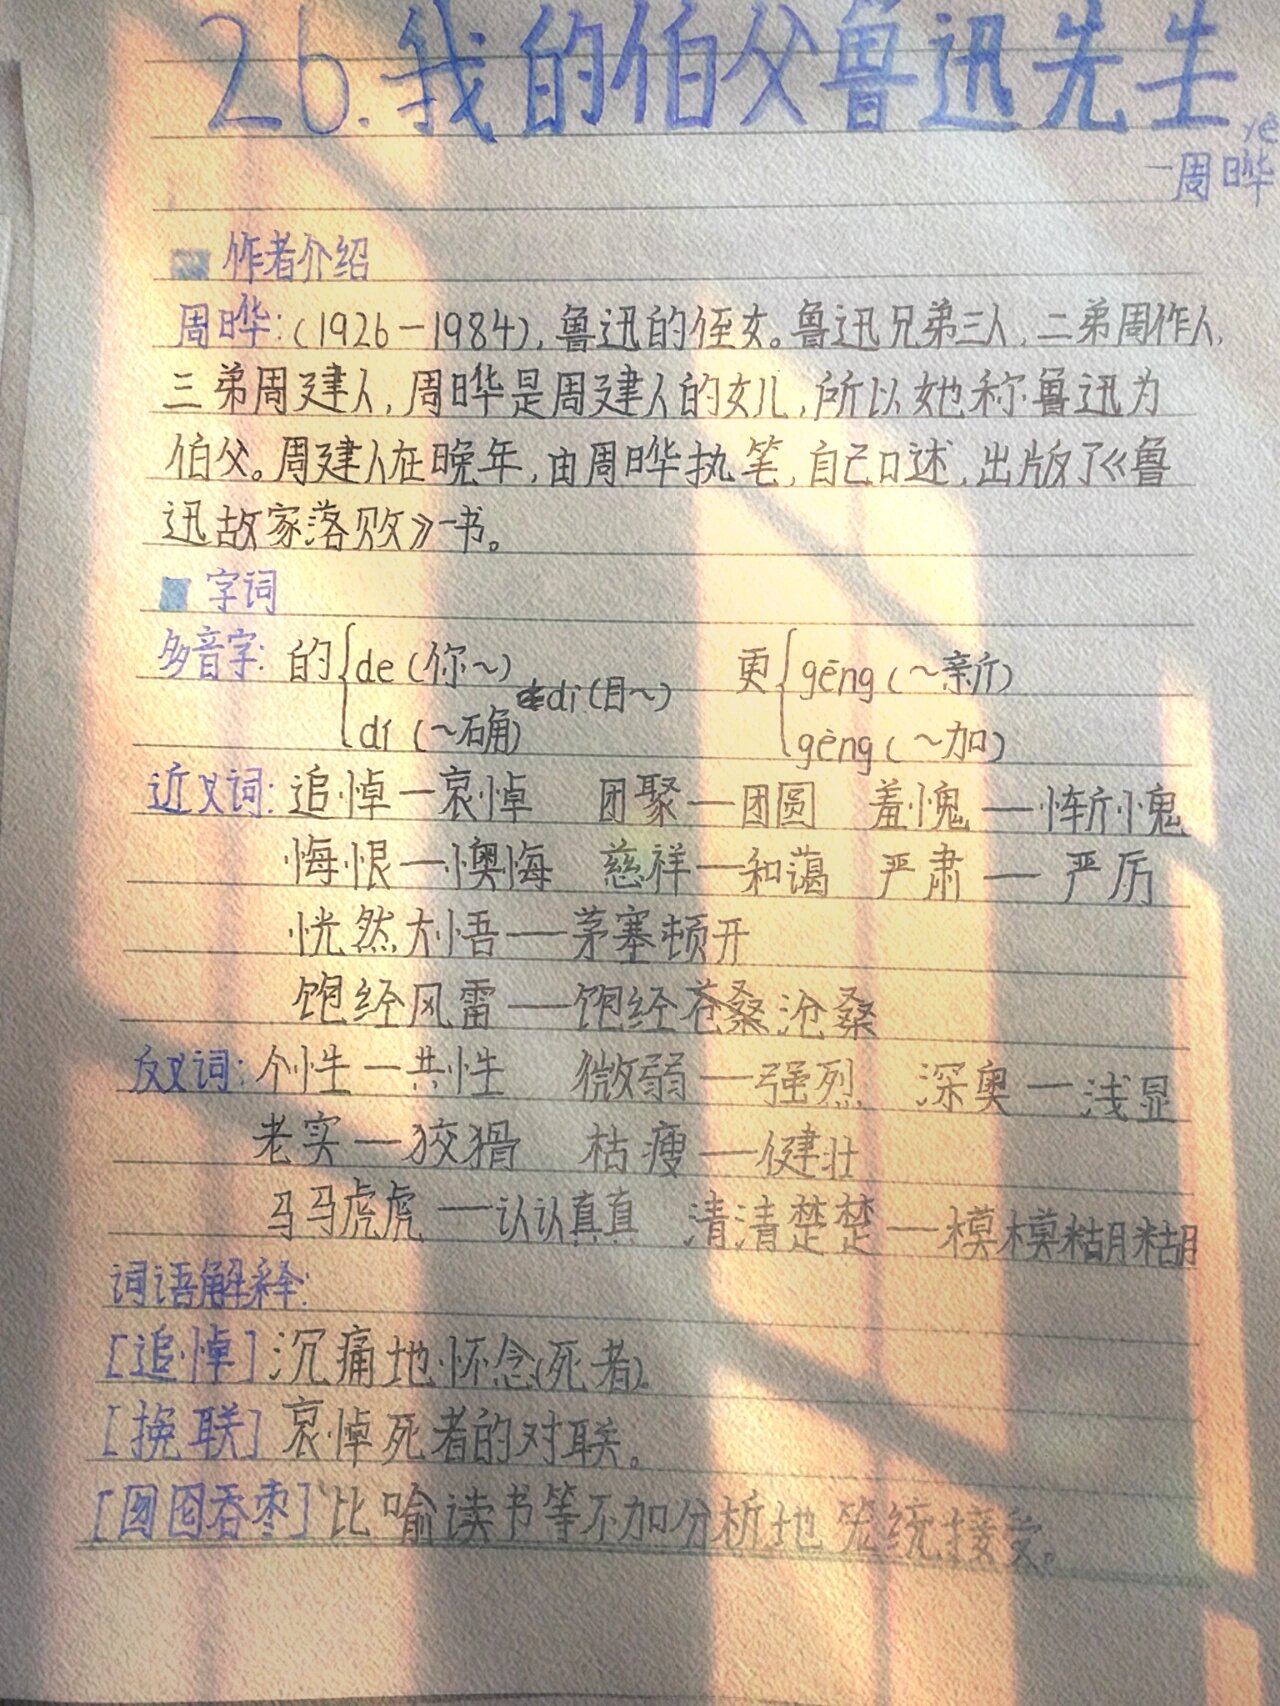 26.我的伯父鲁迅先生
yè
—周晔
作者介绍
周晔:(1926—1984),鲁迅的侄女。鲁迅兄弟三人,二弟周作人,
三弟周建人,周晔是周建人的女儿,所以她称鲁迅为
伯父。周建人在晚年,由周晔执笔,自己口述,出版了《鲁
迅故家落败》一书。
字词
多音字: 的{de(你~) dí(~确) dì(目~) 更{gēng(~新) gèng(~加)
近义词: 追悼—哀悼 团聚—团圆 羞愧—惭愧
悔恨—懊悔 慈祥—和蔼 严肃—严厉
恍然大悟—茅塞顿开
饱经风雷—饱经苍桑沧桑
反义词: 个性—共性 微弱—强烈 深奥—浅显
老实—狡猾 枯瘦—健壮
马马虎虎—认认真真 清清楚楚—模模糊糊
词语解释:
[追悼]沉痛地怀念(死者)。
[挽联]哀悼死者的对联。
[囫囵吞枣]比喻读书等不加分析地笼统接受。